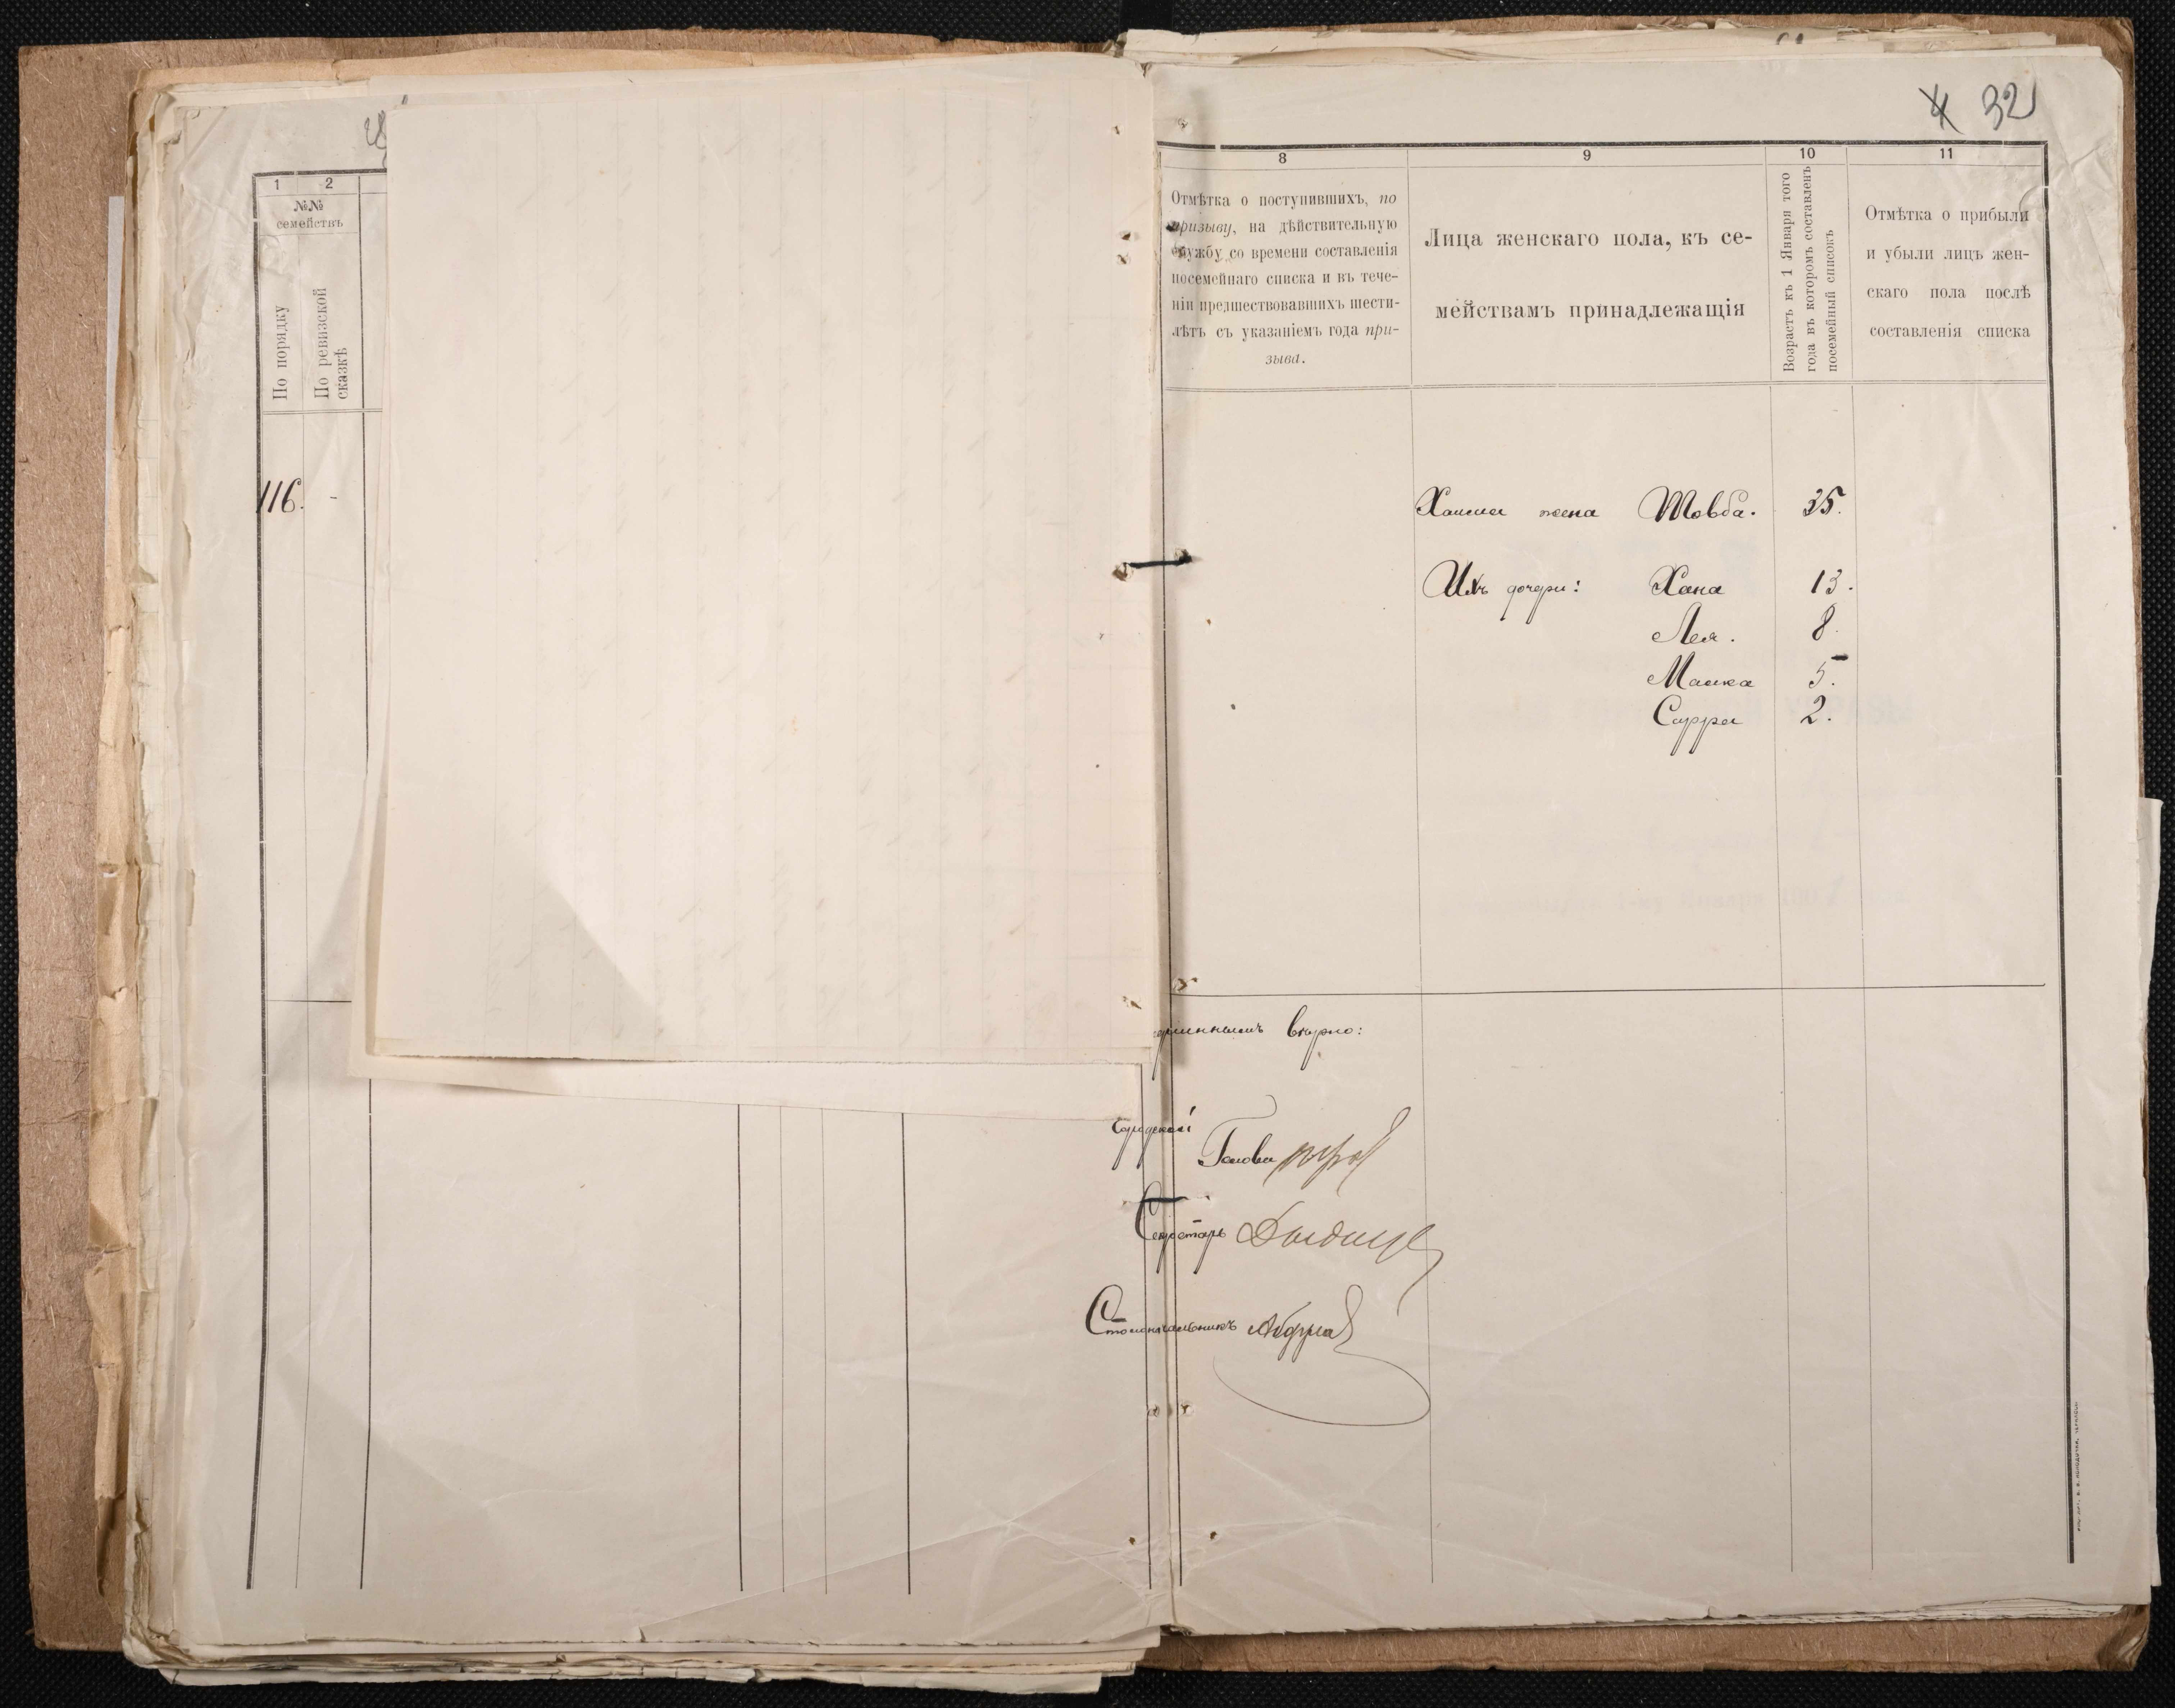 1
2
№№
семействъ
По порядку
По ревизской
сказкѣ
116. -
32
8
9
10
11
Отмѣтка о поступившихъ, по
призыву, на дѣйствительную
службу со времени составленія
посемейнаго списка и въ тече-
ніи предшествовавшихъ шести-
лѣтъ съ указаніемъ года при-
зыва.
Лица женскаго пола, къ се-
мействамъ принадлежащія
Возрастъ къ 1 Января того
года въ которомъ составленъ
посемейный списокъ
Отмѣтка о прибыли
и убыли лицъ жен-
скаго пола послѣ
составленія списка
Хаима жена Товба. 35.
Ихъ дочери: Хана 13.
Лея. 8.
Малка 5.
Сарра 2.
вѣрно:
Городской
Голова
Секретарь
Столоначальникъ